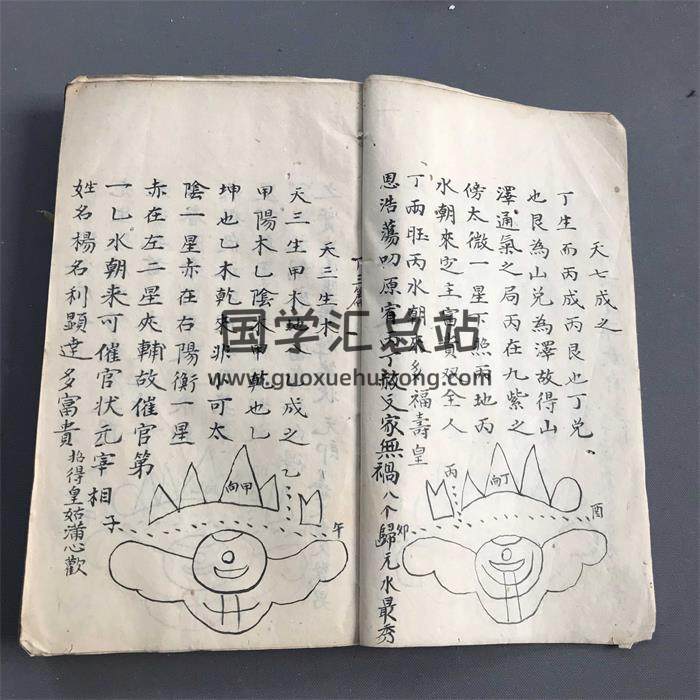 天七成之
丁生而丙成丙艮也丁兌
也艮為山兌為澤故得山
澤通氣之局丙在九紫之
傍太微一星下照兩地丙
水朝來定主富貴双全人
丁兩旺丙水朝來多福壽皇
恩浩蕩叨原宥丙丁赦文家無禍八个歸元水最秀
丁向
丙
酉
卯
天三生木
天三生甲木地八成之
甲陽木乙陰木甲乾也乙
坤也乙木乾來非可太
陰一星赤在右陽衡一星
赤在左二星夾輔故催官第
一乙水朝來可催官狀元宰相子
姓名楊名利顯達多富貴招得皇姑滿心歡
甲向
乙
午
国学汇总站
www.guoxuehuizong.com